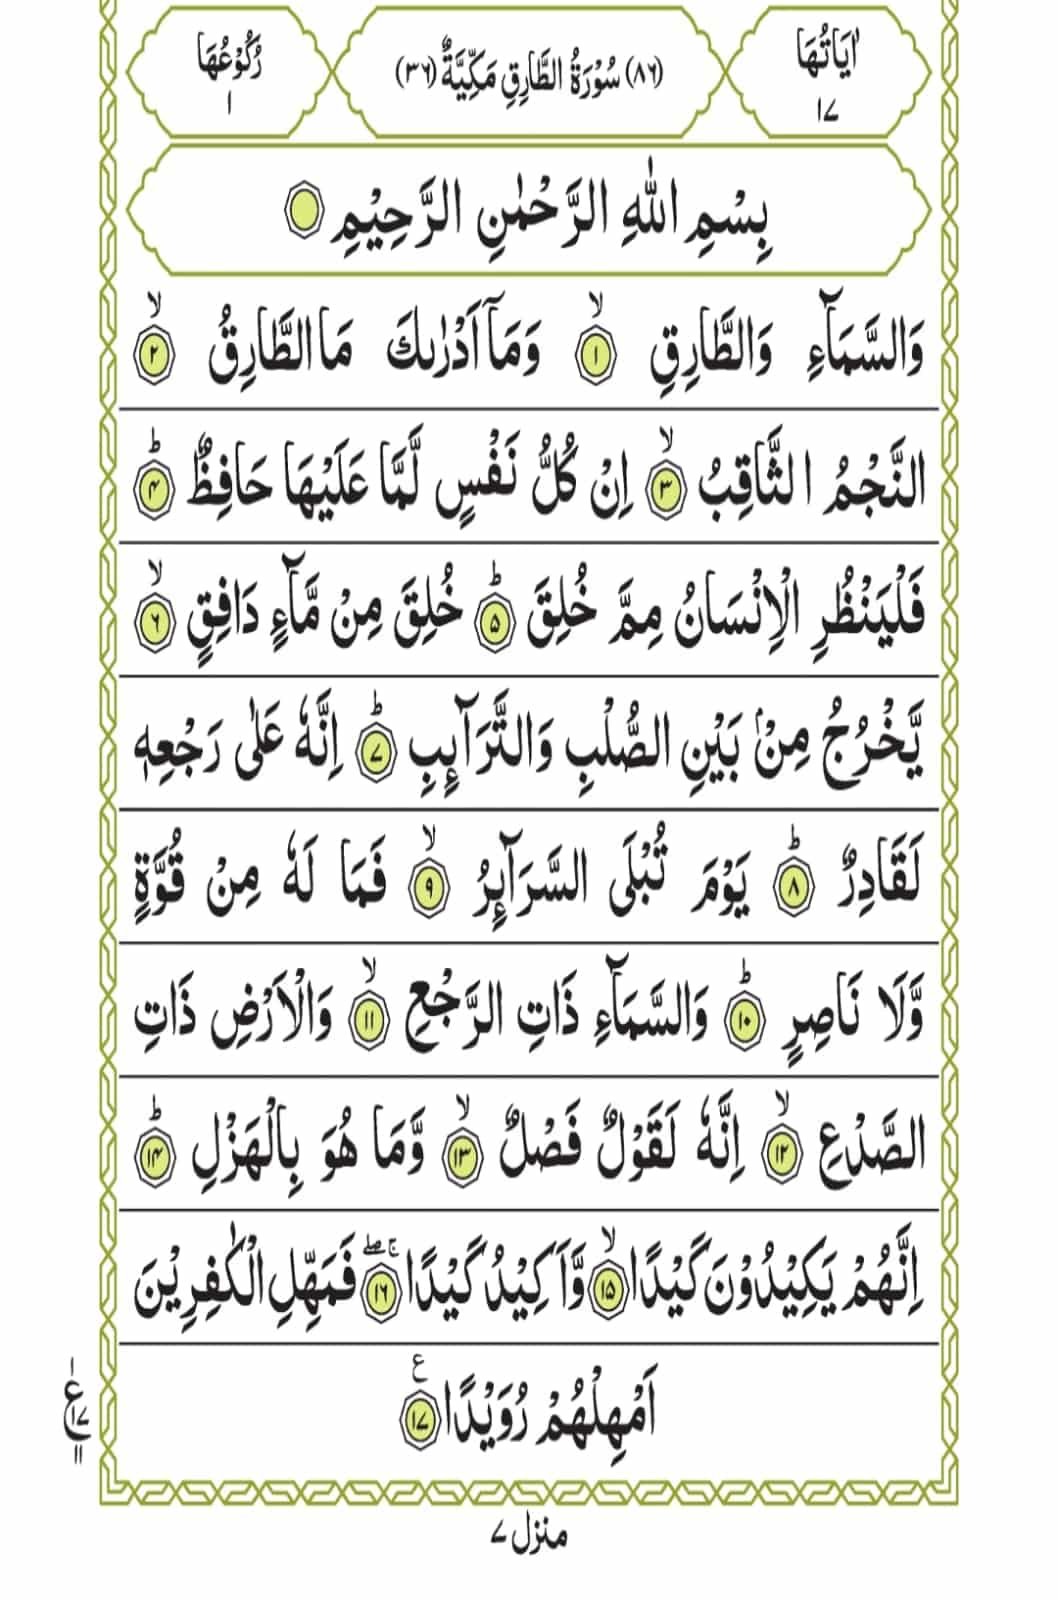 اٰيَاتُهَا ١٧
(٨٦) سُوْرَةُ الطَّارِقِ مَكِّيَّةٌ (٣٦)
رُكُوْعُهَا ١
بِسْمِ اللّٰهِ الرَّحْمٰنِ الرَّحِيْمِ
وَالسَّمَآءِ وَالطَّارِقِ ۙ﴿١﴾ وَمَاۤ اَدْرٰىكَ مَا الطَّارِقُ ۙ﴿٢﴾
النَّجْمُ الثَّاقِبُ ۙ﴿٣﴾ اِنْ كُلُّ نَفْسٍ لَّمَّا عَلَيْهَا حَافِظٌ ؕ﴿٤﴾
فَلْيَنْظُرِ الْاِنْسَانُ مِمَّ خُلِقَ ؕ﴿٥﴾ خُلِقَ مِنْ مَّآءٍ دَافِقٍ ۙ﴿٦﴾
يَّخْرُجُ مِنْۢ بَيْنِ الصُّلْبِ وَالتَّرَآىِٕبِ ؕ﴿٧﴾ اِنَّهٗ عَلٰى رَجْعِهٖ
لَقَادِرٌ ؕ﴿٨﴾ يَوْمَ تُبْلَى السَّرَآىِٕرُ ۙ﴿٩﴾ فَمَا لَهٗ مِنْ قُوَّةٍ
وَّلَا نَاصِرٍ ؕ﴿١٠﴾ وَالسَّمَآءِ ذَاتِ الرَّجْعِ ۙ﴿١١﴾ وَالْاَرْضِ ذَاتِ
الصَّدْعِ ۙ﴿١٢﴾ اِنَّهٗ لَقَوْلٌ فَصْلٌ ۙ﴿١٣﴾ وَّمَا هُوَ بِالْهَزْلِ ؕ﴿١٤﴾
اِنَّهُمْ يَكِيْدُوْنَ كَيْدًا ۙ﴿١٥﴾ وَّاَكِيْدُ كَيْدًا ۚۖ﴿١٦﴾ فَمَهِّلِ الْكٰفِرِيْنَ
اَمْهِلْهُمْ رُوَيْدًا ﴿١٧﴾ ع
١ ع ١٧ ١١
منزل ٧